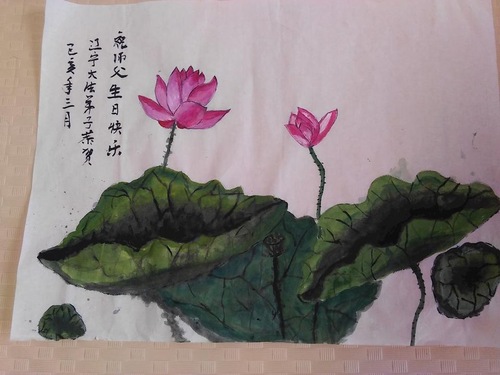 祝师父生日快乐
辽宁大法弟子恭賀
己亥年三月